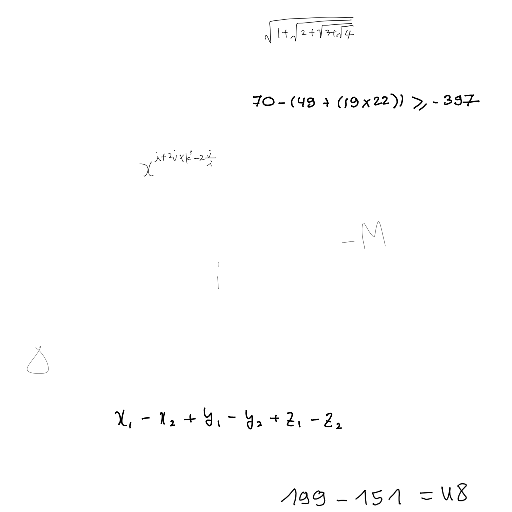 √(1+√(2+√(3+√4)))
70-(49+(19×22))≥-397
-M
|
Δ
x₁-x₂+y₁-y₂+z₁-z₂
199-151=48